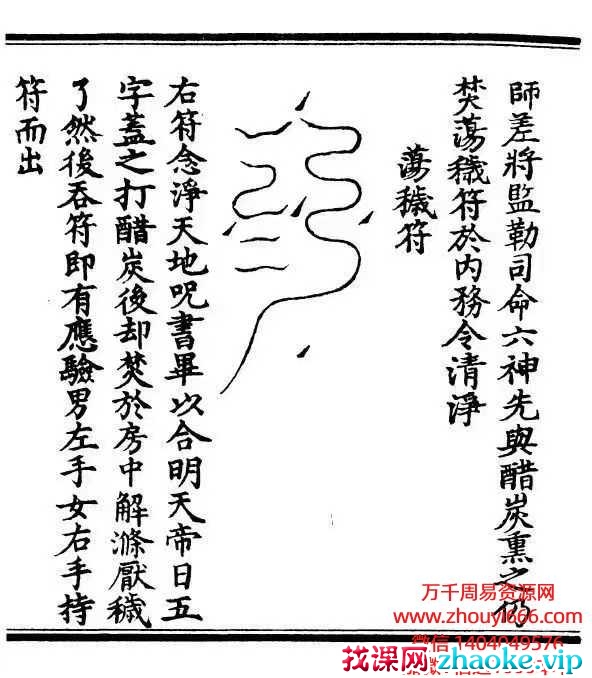 師差將監勒司命六神先與醋炭熏之仍
焚蕩穢符於内務令清淨
蕩穢符
右符念淨天地呪書畢以合明天帝日五
字蓋之打醋炭後却焚於房中解滌厭穢
了然後吞符即有應驗男左手女右手持
符而出
万千周易资源网
www.zhouyi666.com
微信 1404049576
找课网zhaoke.vip